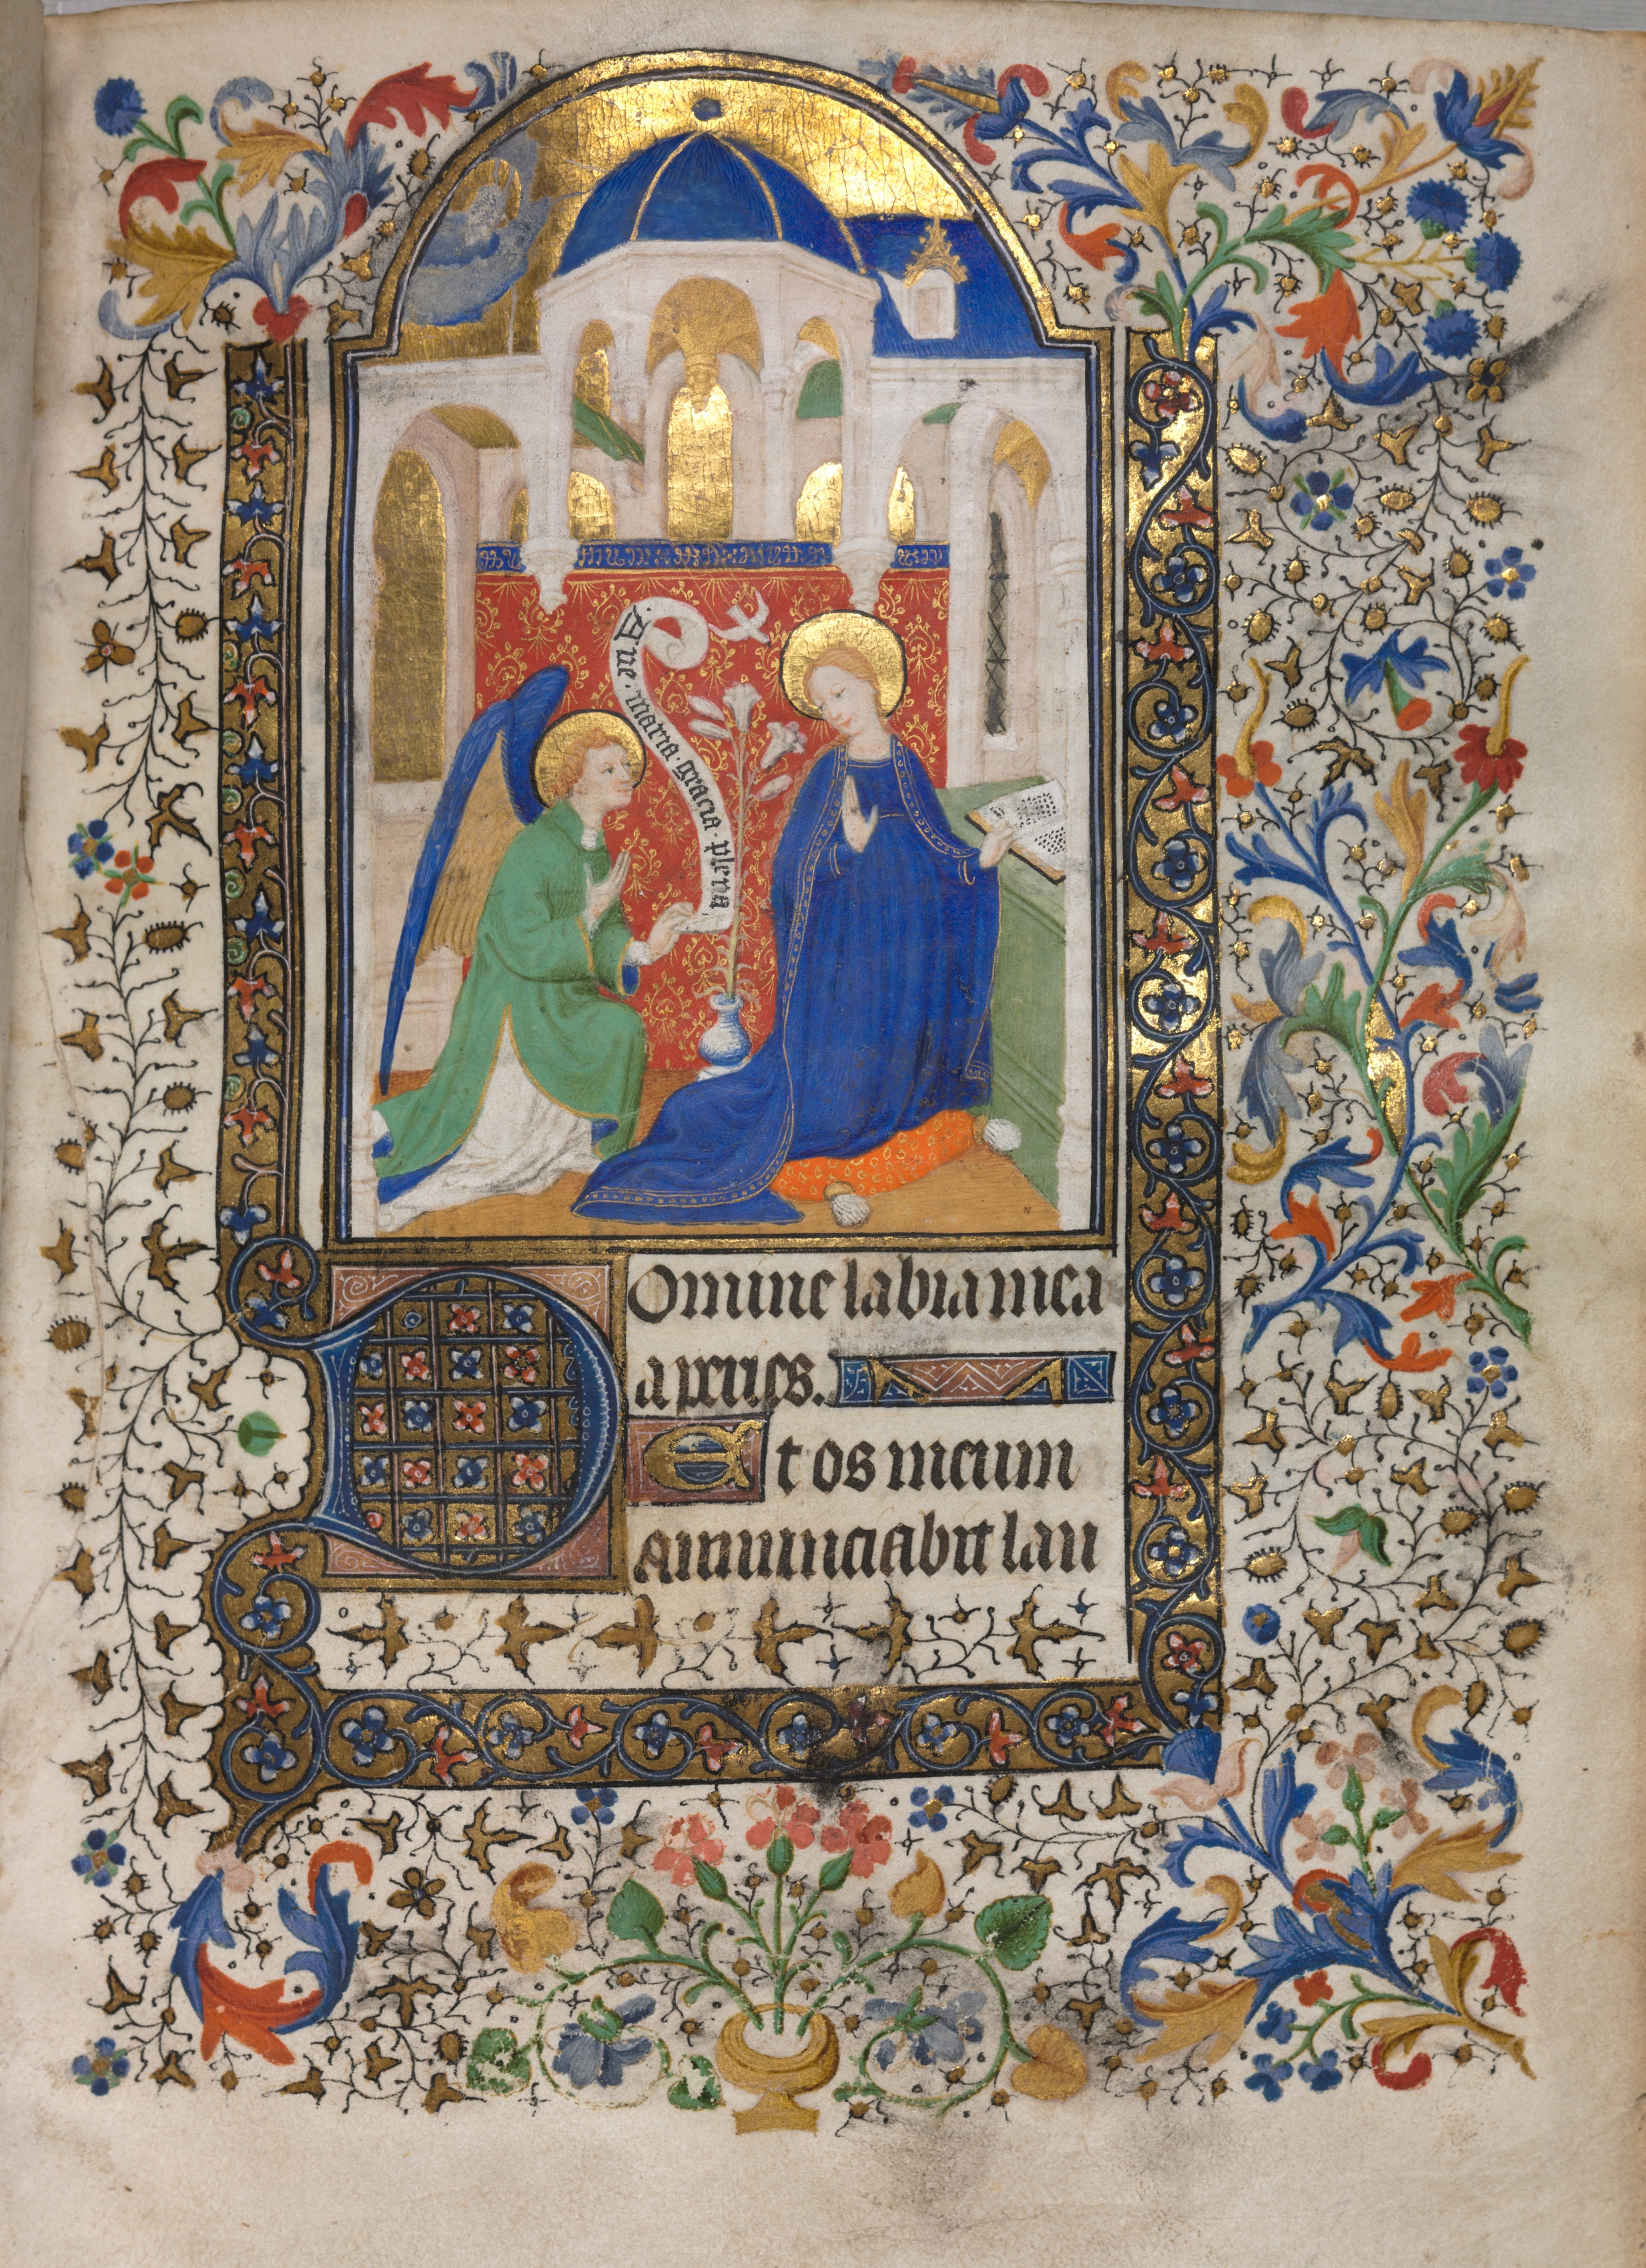 Aue. maria. gracia. plena
Domine labia mea
aperies.
Et os meum
annunciabit lau